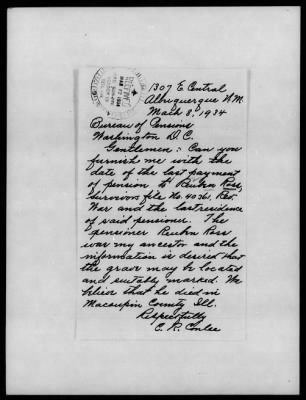 1307 E Central
Albuquerque N.M.
Mach 8, 1934
Bureau of Pensions
Washington D.C.
Gentlemen: Can you
furnish me with the
date of the last payment
of pension to Reubn Ross,
Survivors file No. 40361, Rev.
War and the last residence
of said pensioner. The
pensioner Reubn Ross
was my ancestor and the
information is desired that
the grave may be located
and suitably marked. We
beleive that he died in
Macoupin County Ill.
Respectfully
C. R. Conlee